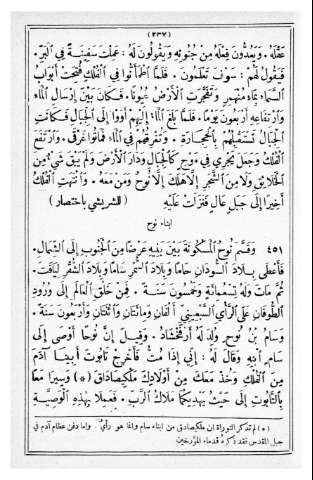 (٢٣٧)
عَقْلَهُ. وَيَعُدُّونَ فِعْلَهُ مِنْ جُنُونِهِ وَيَقُولُونَ لَهُ: عَمِلْتَ سَفِينَةً فِي الْبَرِّ.
فَيَقُولُ لَهُمْ: سَوْفَ تَعْلَمُونَ. فَلَمَّا اطْمَأَنُّوا فِي الْفُلْكِ فُتِحَتْ أَبْوَابُ
السَّمَاءِ بِمَاءٍ مُنْهَمِرٍ وَتَفَجَّرَتِ الْأَرْضُ عُيُونًا. فَكَانَ بَيْنَ إِرْسَالِ الْمَاءِ
وَارْتِفَاعِهِ أَرْبَعُونَ يَوْمًا. فَلَمَّا بَلَغَ الْمَاءُ إِلَيْهِمْ أَوَوْا إِلَى الْجِبَالِ فَكَانَتِ
الْجِبَالُ تَسْتَقْبِلُهُمْ بِالْحِجَارَةِ. وَتُغْرِقُهُمْ فِي الْمَاءِ فَمَاتُوا غَرْقَى. وَارْتَفَعَ
الْفُلْكُ وَجَعَلَ يَجْرِي فِي مَوْجٍ كَالْجِبَالِ وَدَارَ الْأَرْضَ وَلَمْ يَبْقَ شَيْءٌ مِنَ
الْخَلَائِقِ وَلَا مِنَ الشَّجَرِ إِلَّا هَلَكَ إِلَّا نُوحٌ وَمَنْ مَعَهُ. وَانْتَهَتِ الْفُلْكُ
أَخِيرًا إِلَى جَبَلٍ عَالٍ فَنَزَلَتْ عَلَيْهِ (للشريشي باختصار)
ابناء نوح
٤٥١ وَقَسَمَ نُوحٌ الْمَسْكُونَةَ بَيْنَ بَنِيهِ عَرْضًا مِنَ الْجَنُوبِ إِلَى الشِّمَالِ.
فَأَعْطَى بِلَادَ السُّودَانِ حَامًا وَبِلَادَ السُّمْرِ سَامًا وَبِلَادَ الشُّقْرِ يَافَثَ.
ثُمَّ مَاتَ وَلَهُ تِسْعُمِائَةٍ وَخَمْسُونَ سَنَةً. فَمِنْ خَلْقِ الْعَالَمِ إِلَى وُرُودِ
الطُّوفَانِ عَلَى الرَّأْيِ السَّبْعِينِيِّ أَلْفَانِ وَمِائَتَانِ وَاثْنَتَانِ وَأَرْبَعُونَ سَنَةً.
وَسَامُ بْنُ نُوحٍ وُلِدَ لَهُ أَرْفَخْشَادُ. وَقِيلَ إِنَّ نُوحًا أَوْصَى إِلَى
سَامٍ ابْنِهِ وَقَالَ لَهُ: إِنِّي إِذَا مُتُّ فَأَخْرِجْ تَابُوتَ أَبِينَا آدَمَ
مِنَ الْفُلْكِ وَخُذْ مَعَكَ مِنْ أَوْلَادِكَ مَلْكِيصَادَاقَ (*) وَسِيرَا مَعًا
بِالتَّابُوتِ إِلَى حَيْثُ يَهْدِيكُمَا مَلَاكُ الرَّبِّ. فَعَمِلَا بِهَذِهِ الْوَصِيَّةِ
(*) لم تذكر التوراة ان ملكيصادق من ابناء سام وانما هو رأيٌ. واما دفن عظام آدم في
جبل المقدس فقد ذكره قدماء المؤرخين